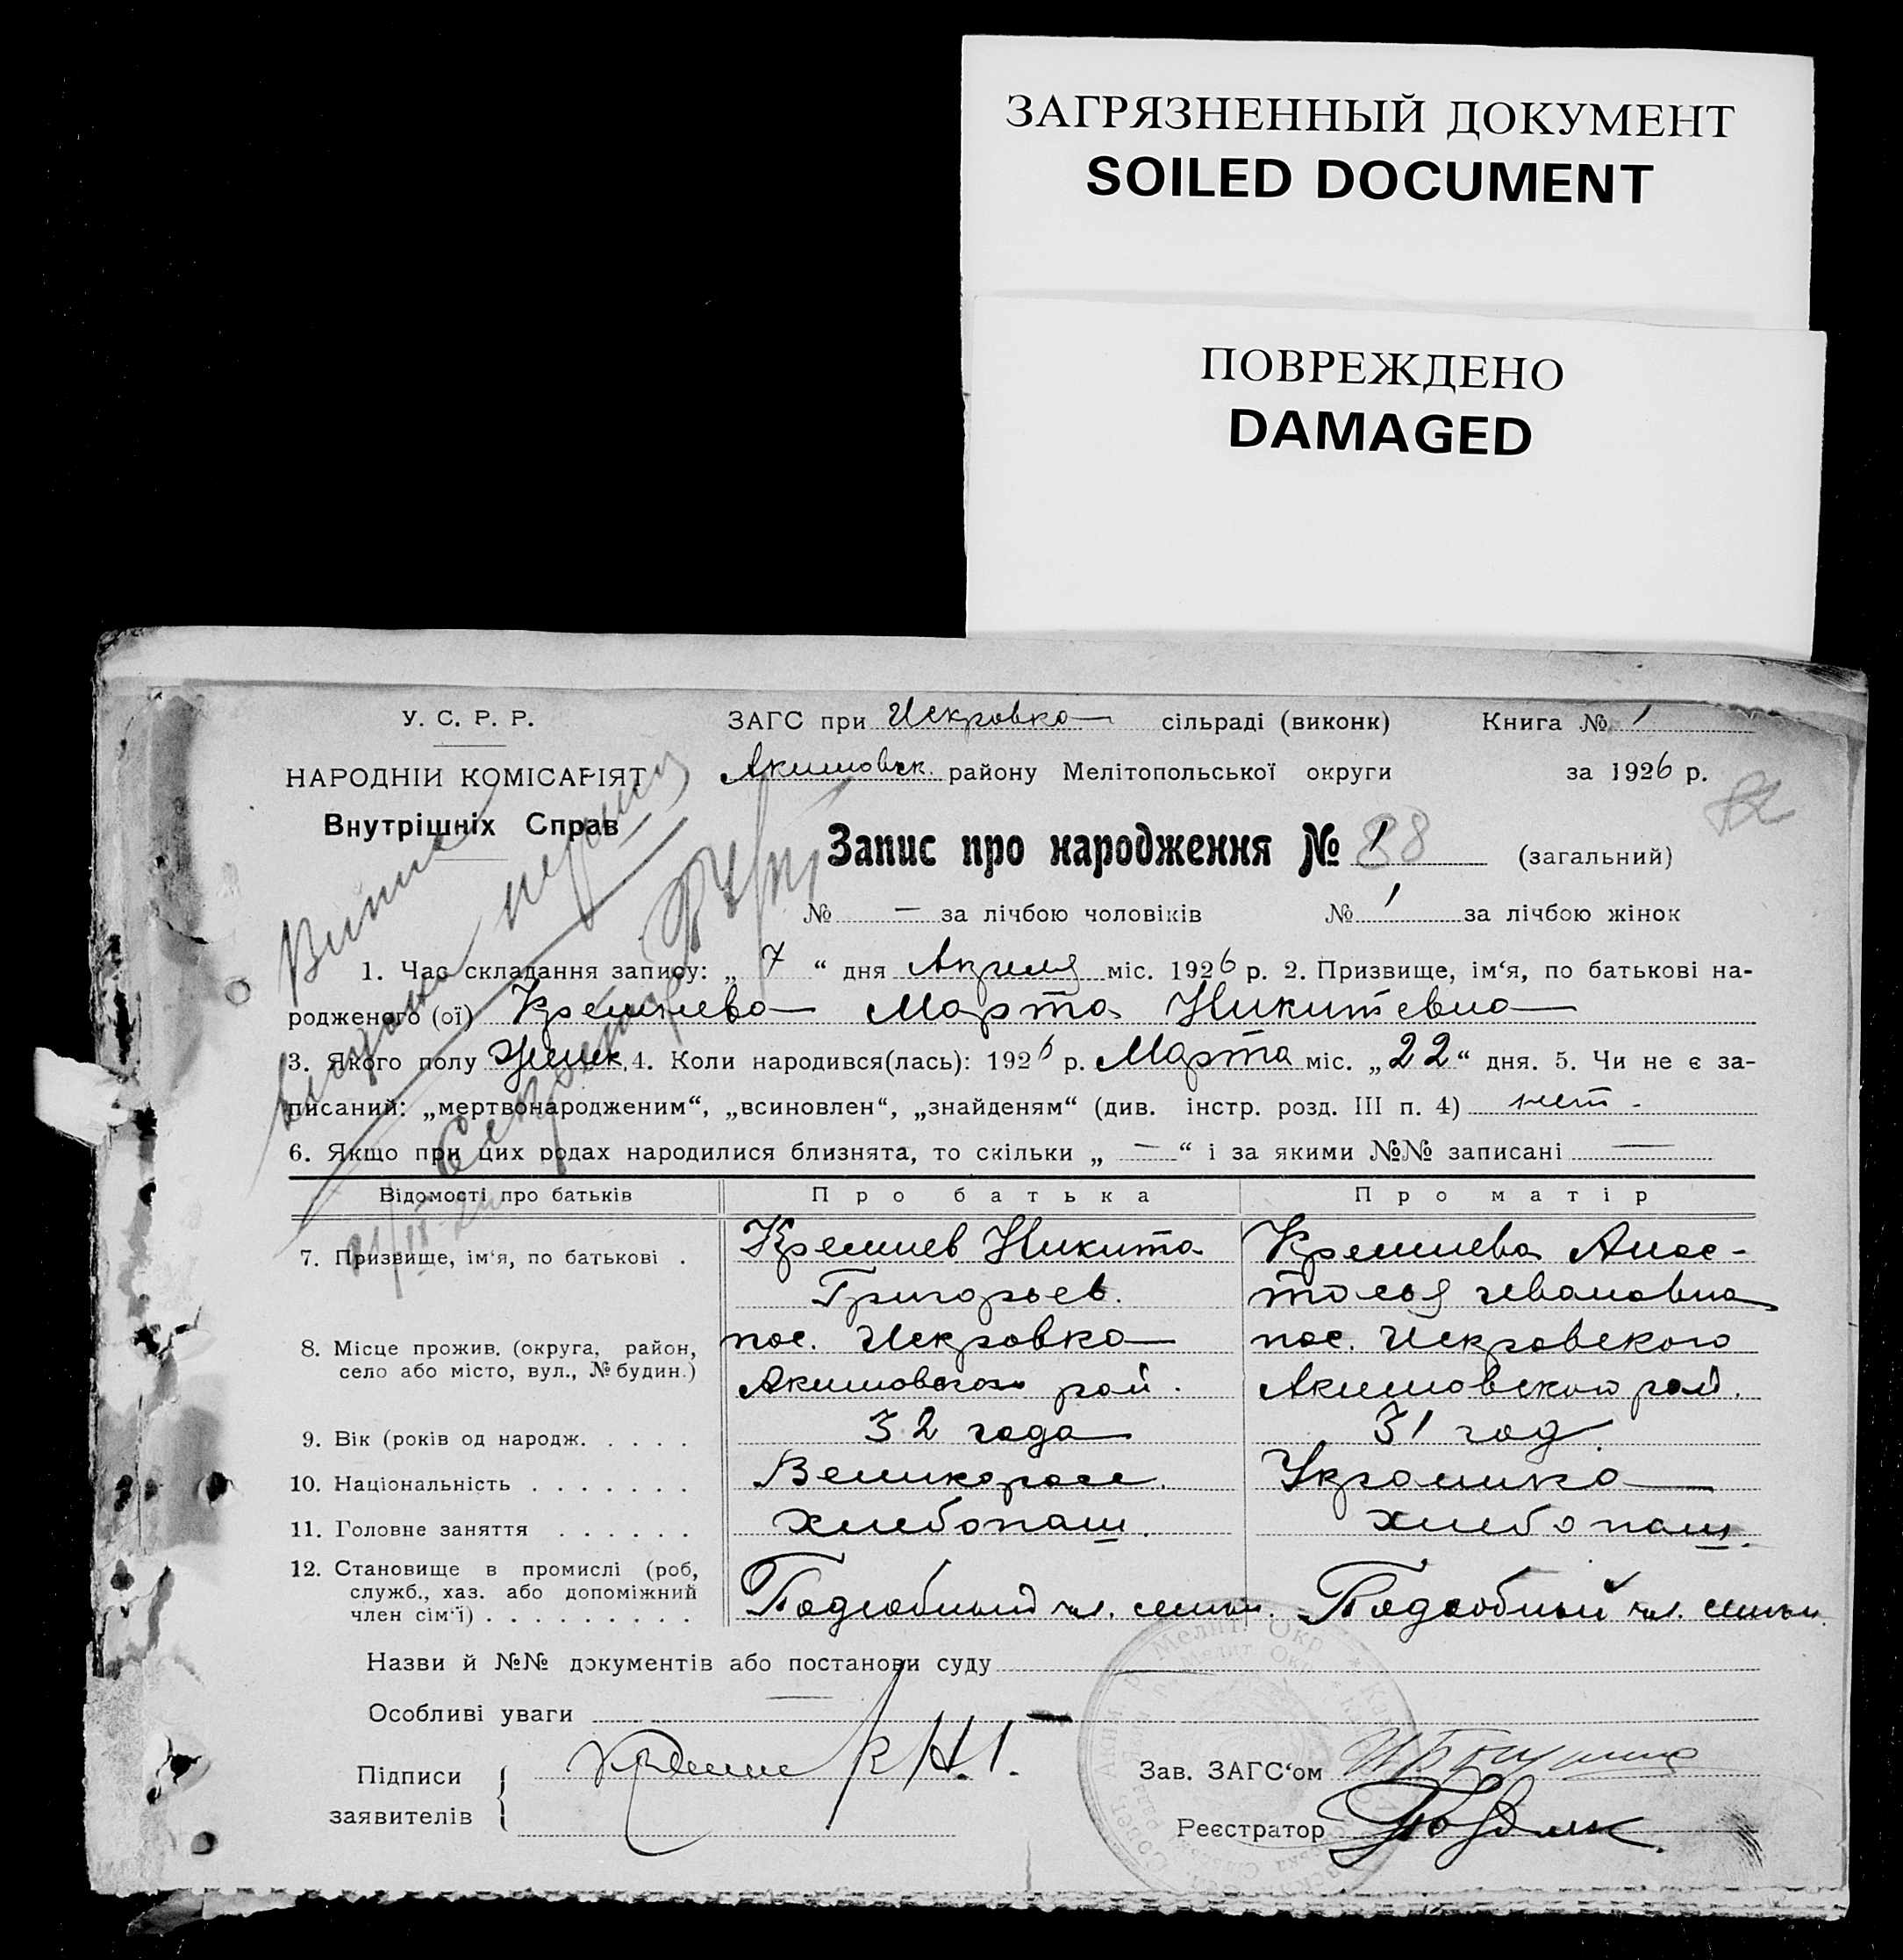 ЗАГРЯЗНЕННЫЙ ДОКУМЕНТ
SOILED DOCUMENT
ПОВРЕЖДЕНО
DAMAGED
У. С. Р. Р.
ЗАГС при Искровка сільраді (виконк) Книга № 1
НАРОДНІЙ КОМІСАРІЯТ
Акимовск. району Мелітопольської округи за 1926 р.
Внутрішніх Справ
Запис про народження № 1 88 (загальний)
№ — за лічбою чоловіків № 1 за лічбою жінок
1. Час складання запису: „ 7 “ дня Апреля міс. 1926 р. 2. Призвище, ім‘я, по батькові на-
родженого (ої) Кремнева Марта Никитевна
3. Якого полу женск. 4. Коли народився(лась): 1926 р. Марта міс. „22“ дня. 5. Чи не є за-
писаний: „мертвонародженим“, „всиновлен“, „знайденям“ (див. інстр. розд. III п. 4) нет -
6. Якщо при цих родах народилися близнята, то скільки „ — “ і за якими №№ записані —
Відомості про батьків Про батька Про матір
7. Призвище, ім‘я, по батькові . Кремнев Никита Кремнева Анас-
Григорьев. тасья Ивановна
8. Місце прожив. (округа, район, пос. Искровка пос. Искровского
село або місто, вул., № будин.) Акимовского рай. Акимовского рай.
9. Вік (років од народж. . . . . 32 года 31 год.
10. Національність . . . . . . . Великоросс. Украинка
11. Головне заняття . . . . . . хлебопаш. хлебопаш.
12. Становище в промислі (роб,
служб., хаз. або допоміжний
член сім‘ї) . . . . . . . . . Подсобный чл. семьи. Подсобный чл. семьи.
Назви й №№ документів або постанови суду
Особливі уваги
Підписи
заявителів
Зав. ЗАГС‘ом
Реєстратор